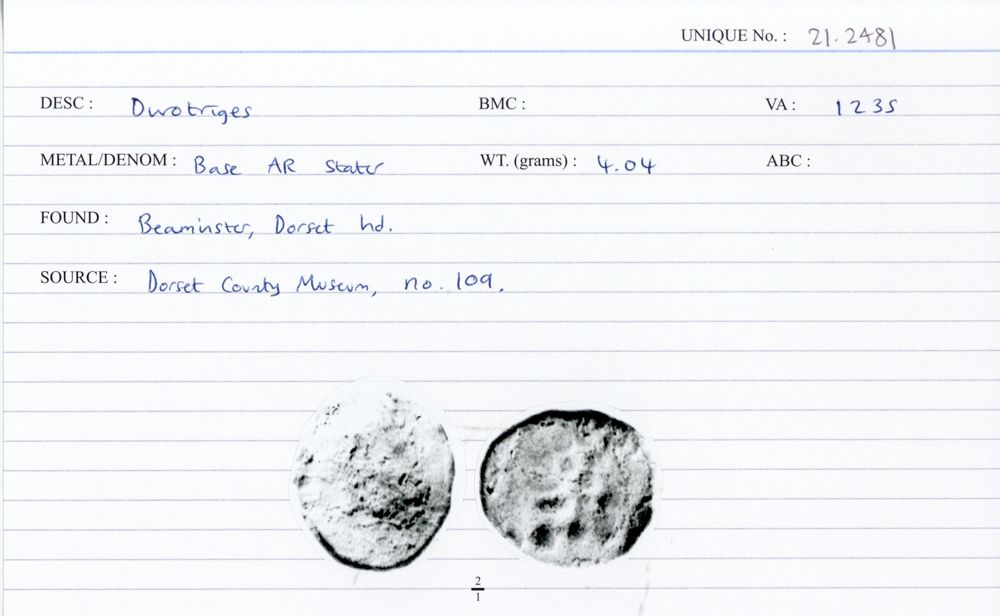 UNIQUE No. : 21.2481
DESC : Durotriges BMC : VA : 1235
METAL/DENOM : Base AR Stater WT. (grams) : 4.04 ABC :
FOUND : Beaminster, Dorset hd.
SOURCE : Dorset County Museum, no. 109.
2
1